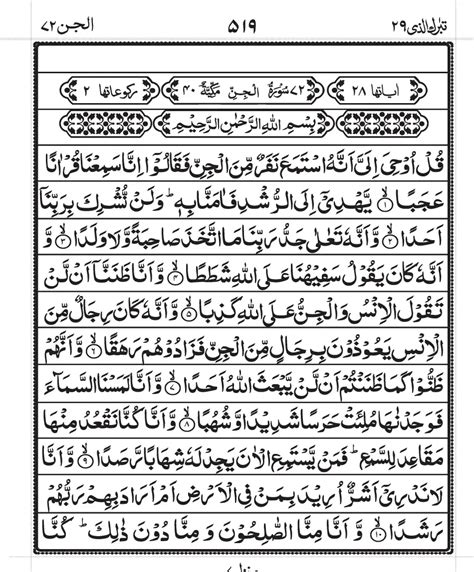 تبٰرک الذی ٢٩ ۵۱۹ الجن ٧٢
اٰیاتها ٢٨ ٧٢ سُوْرَةُ الْجِنِّ مَكِّيَّةٌ ٤٠ رکوعاتها ٢
بِسْمِ اللّٰهِ الرَّحْمٰنِ الرَّحِيْمِ
قُلْ اُوْحِيَ اِلَيَّ اَنَّهُ اسْتَمَعَ نَفَرٌ مِّنَ الْجِنِّ فَقَالُوْۤا اِنَّا سَمِعْنَا قُرْاٰنًا
عَجَبًا ۙ﴿١﴾ يَّهْدِيْۤ اِلَى الرُّشْدِ فَاٰمَنَّا بِهٖ ؕ وَلَنْ نُّشْرِكَ بِرَبِّنَاۤ
اَحَدًا ۙ﴿٢﴾ وَّاَنَّهٗ تَعٰلٰى جَدُّ رَبِّنَا مَا اتَّخَذَ صَاحِبَةً وَّلَا وَلَدًا ۙ﴿٣﴾ وَّ
اَنَّهٗ كَانَ يَقُوْلُ سَفِيْهُنَا عَلَى اللّٰهِ شَطَطًا ۙ﴿٤﴾ وَّاَنَّا ظَنَنَّاۤ اَنْ لَّنْ
تَقُوْلَ الْاِنْسُ وَالْجِنُّ عَلَى اللّٰهِ كَذِبًا ۙ﴿٥﴾ وَّاَنَّهٗ كَانَ رِجَالٌ مِّنَ
الْاِنْسِ يَعُوْذُوْنَ بِرِجَالٍ مِّنَ الْجِنِّ فَزَادُوْهُمْ رَهَقًا ۙ﴿٦﴾ وَّاَنَّهُمْ
ظَنُّوْا كَمَا ظَنَنْتُمْ اَنْ لَّنْ يَّبْعَثَ اللّٰهُ اَحَدًا ۙ﴿٧﴾ وَّاَنَّا لَمَسْنَا السَّمَآءَ
فَوَجَدْنٰهَا مُلِئَتْ حَرَسًا شَدِيْدًا وَّشُهُبًا ۙ﴿٨﴾ وَّاَنَّا كُنَّا نَقْعُدُ مِنْهَا
مَقَاعِدَ لِلسَّمْعِ ؕ فَمَنْ يَّسْتَمِعِ الْاٰنَ يَجِدْ لَهٗ شِهَابًا رَّصَدًا ۙ﴿٩﴾ وَّاَنَّا
لَا نَدْرِيْۤ اَشَرٌّ اُرِيْدَ بِمَنْ فِي الْاَرْضِ اَمْ اَرَادَ بِهِمْ رَبُّهُمْ
رَشَدًا ۙ﴿١٠﴾ وَّاَنَّا مِنَّا الصّٰلِحُوْنَ وَمِنَّا دُوْنَ ذٰلِكَ ؕ كُنَّا